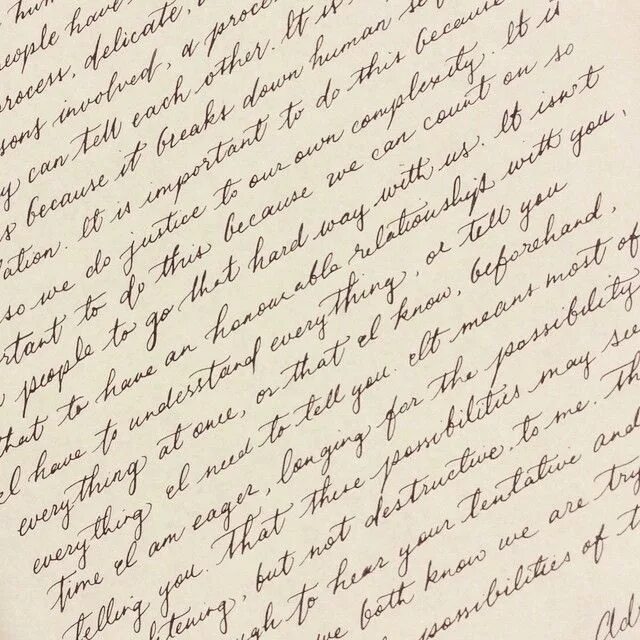 hum
eople have
rocess, delicate,
sons involved, a proces
y can tell each other. It is
s because it breaks down human se
ation. It is important to do this because
so we do justice to our own complexity. It is
rtant to do this because we can count on so
people to go that hard way with us. It isn't
that to have an honourable relationship with you,
I have to understand everything, or tell you
everything at once, or that I know, beforehand,
everything I need to tell you. It means most of
time I am eager, longing for the possibility
telling you. That these possibilities may see
htening, but not destructive, to me. Th
ugh to hear your tentative and
we both know we are try
possibilities of t
Adr